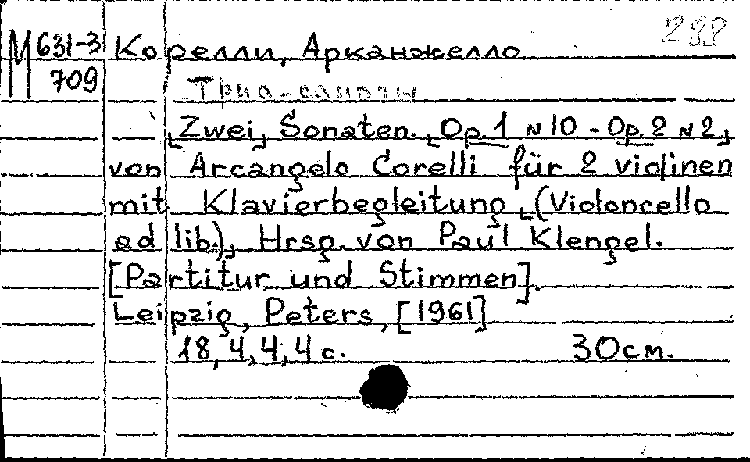 М 631-3 Корелли, Арканжелло 288
709
Трио-сонаты
[Zwei] Sonaten. [Op. 1 N 10 - Op. 2 N 2]
von Arcangelo Corelli für 2 violinen
mit Klavierbegleitung [(Violoncello
ad lib.)] Hrsg. von Paul Klengel.
[Partitur und Stimmen].
Leipzig, Peters, [1961]
18, 4, 4, 4 с. 30 см.